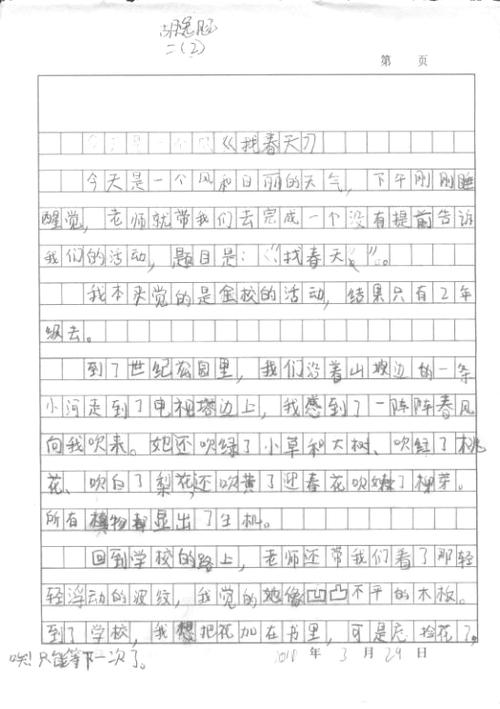 二(2)
第 页
《找春天》
今天是一个风和日丽的天气，下午刚刚睡
醒觉，老师就带我们去完成一个没有提前告诉
我们的活动，题目是：《找春天》。
我本来觉的是全校的活动，结果只有2年
级去。
到了世纪公园里，我们沿着山坡边的一条
小河走到了电视塔边上，我感到了一阵阵春风
向我吹来。她还吹绿了小草和大树、吹红了桃
花、吹白了梨花，还吹黄了迎春花吹嫩了柳芽。
所有植物都显出了生机。
回到学校的路上，老师还带我们看了那轻
轻浮动的波纹，我觉的她像凹凸不平的木板。
到了学校，我想把花加在书里，可是忘捡花了，
唉！只能等下一次了。
2018 年 3 月 29 日